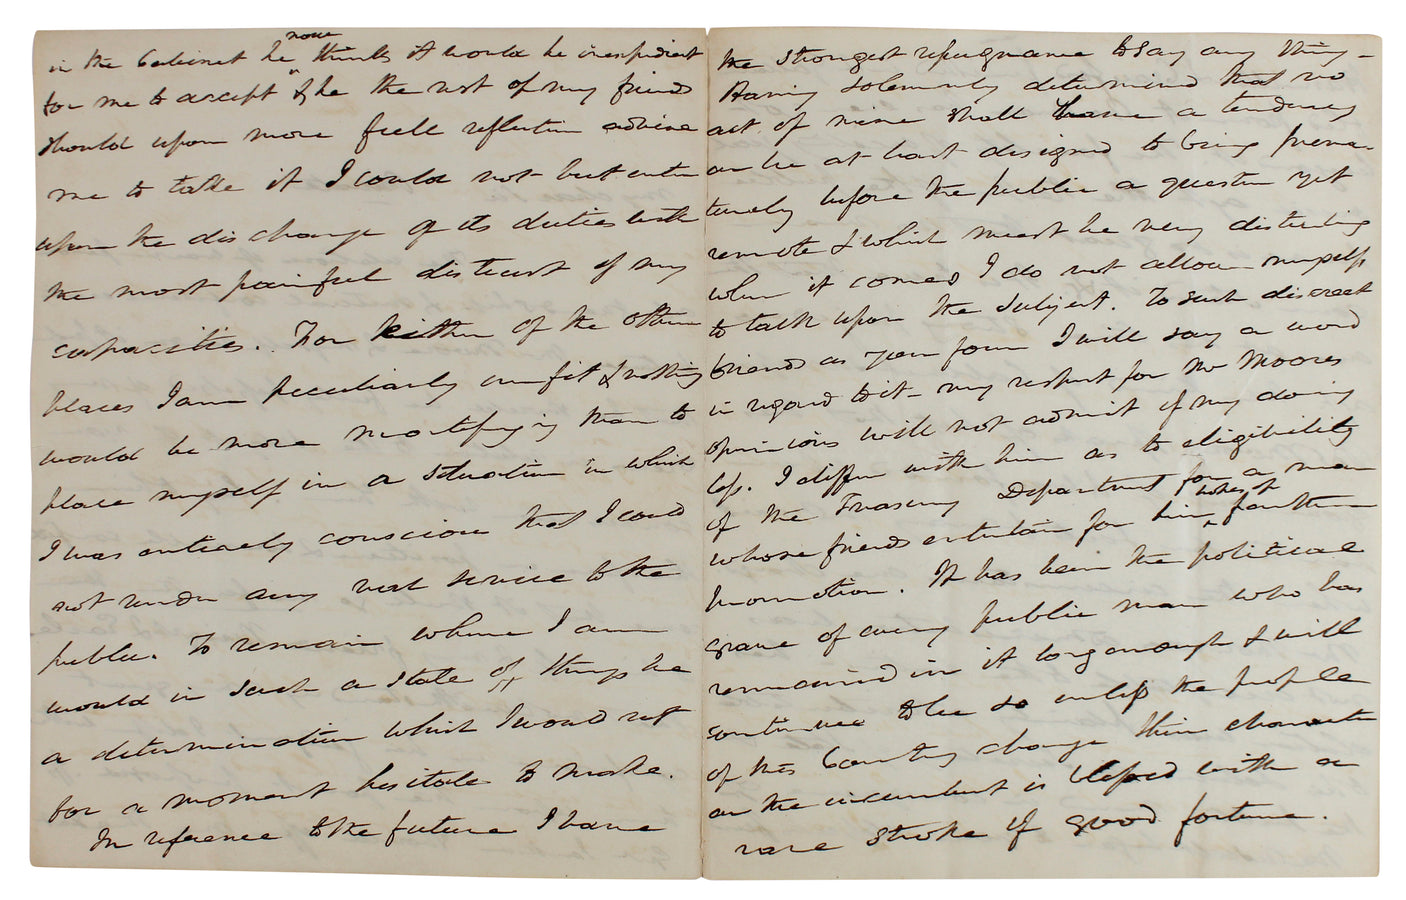 in the Cabinet he now thinks it would be inexpedient
for me to accept & he the rest of my friends
should upon more full reflection advise
me to take it I could not but enter
upon the discharge of its duties with
the most painful distrust of my
capacities. For either of the other
places I am peculiarly unfit & nothing
would be more mortifying than to
place myself in a situation in which
I was entirely conscious that I could
not render any real service to the
public. To remain where I am
would in such a state of things be
a determination which I would not
for a moment hesitate to make.
In reference to the future I have
the strongest repugnance to say any thing -
Having solemnly determined that no
act of mine shall have a tendency
or be at least designed to bring prema-
turely before the public a question yet
remote & which must be very disturbing
when it comes I do not allow myself
to talk upon the subject. To such discreet
friends as your I will say a word
in regard to it - my respect for Mr Moores
opinions will not admit of my doing
less. I differ with him as to eligibility
of the Treasury Department for a man
whose friends entertain for him hopes of further
promotion. It has been the political
grave of every public man who has
remained in it long enough & will
continue to be so unless the people
of this Country change their character
or the incumbent is blessed with a
rare stroke of good fortune.